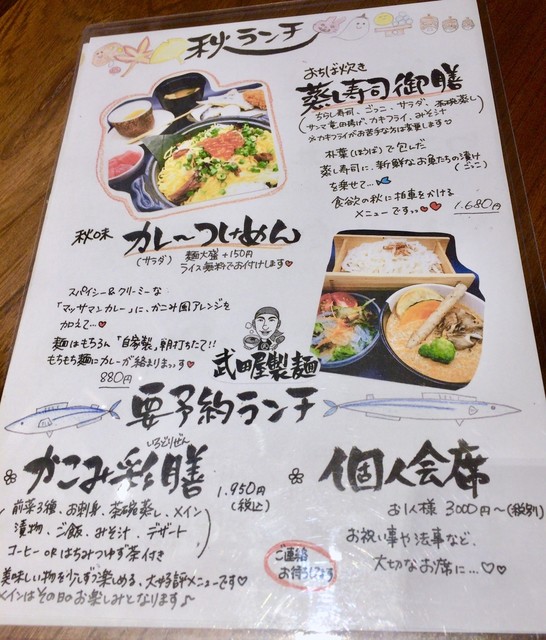 秋ランチ
おちば炊き
蒸し寿司御膳
(ちらし寿司、ごっこ、サラダ、茶碗蒸し
サンマ竜田揚げ、カキフライ、みそ汁
※カキフライが苦手な方は変更します♡)
朴葉(ほうば)で包んだ
蒸し寿司に、新鮮なお魚たちの漬け
(ごっこ)
を乗せて…
食欲の秋に拍車をかける
メニューですっっ♥♥
1.680円
秋味 カレーつけめん
(サラダ) 麺大盛+150円
ライス無料でお付けします♥
スパイシー&クリーミーな
「マッサマンカレー」に、かこみ風アレンジを
加えて…♥
麺はもちろん「自家製」朝打ちたて!!
もちもち麺にカレーが絡まりまっす♥
880円
武田屋製麺
要予約ランチ
いろどりぜん
かこみ彩膳
1.950円
(税込)
(前菜3種、お刺身、茶碗蒸し、メイン
漬物、ご飯、みそ汁、デザート
コーヒー ORはちみつゆず茶付き)
美味しい物を少しずつ楽しめる、大好評メニューです♡
メインはその日のお楽しみとなります♪
個人会席
お1人様 3000円〜(税別)
お祝い事や法事など、
大切なお席に…♡♡
ご連絡
お待ちしてます